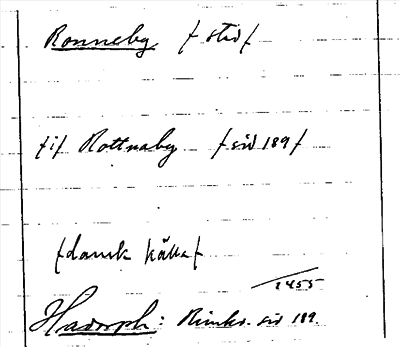 Ronneby /stad/
/i/ Rottnaby /sid 189/
/dansk källa/
1455
Hadorph: Rimkr. sid 189.